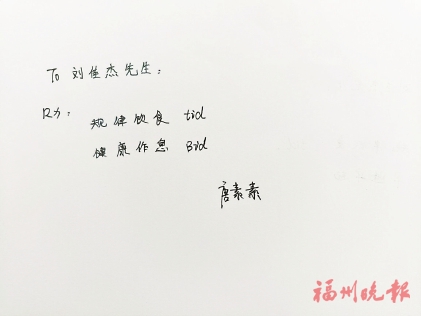 To 刘佳杰先生：
R方：
规律饮食 tid
健康作息 Bid
唐素素
福州晚报